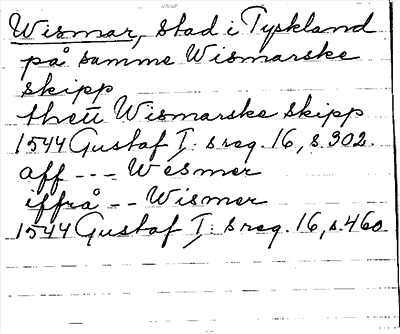 Wismar, stad i Tyskland
på samme Wismarske
skipp
thett Wismarske skipp
1544 Gustaf I: s reg. 16, s. 302.
aff --- Wesmer
iffrå -- Wismer
1544 Gustaf I: s reg. 16, s. 460.